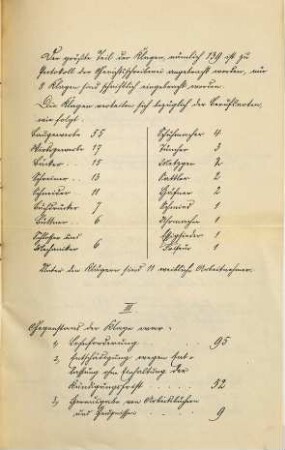 Der größte Teil der Klagen, nämlich 139 ist zu
Protokoll der Gerichtsschreiberei angebracht worden, nur
8 Klagen sind schriftlich eingebracht worden.
Die Klagen verteilen sich bezüglich der Berufsarten,
wie folgt:
Baugewerbe 35
Wirtsgewerbe 17
Bäcker 15
Schreiner 13
Schneider 11
Buchdrucker 7
Büttner 6
Schlosser und
Mechaniker 6
Schuhmacher 4
Tüncher 3
Metzger 2
Sattler 2
Hafner 2
Schmied 1
Uhrmacher 1
1
Friseur 1
Unter den Klägern sind 11 weibliche Arbeitnehmer.
III
Gegenstand der Klage war:
1, Lohnforderung 95
2, Entschädigung wegen Ent-
lassung ohne Einhaltung der
Kündigungsfrist 52
3, Herausgabe von Arbeitsbüchern
und Zeugnissen 9